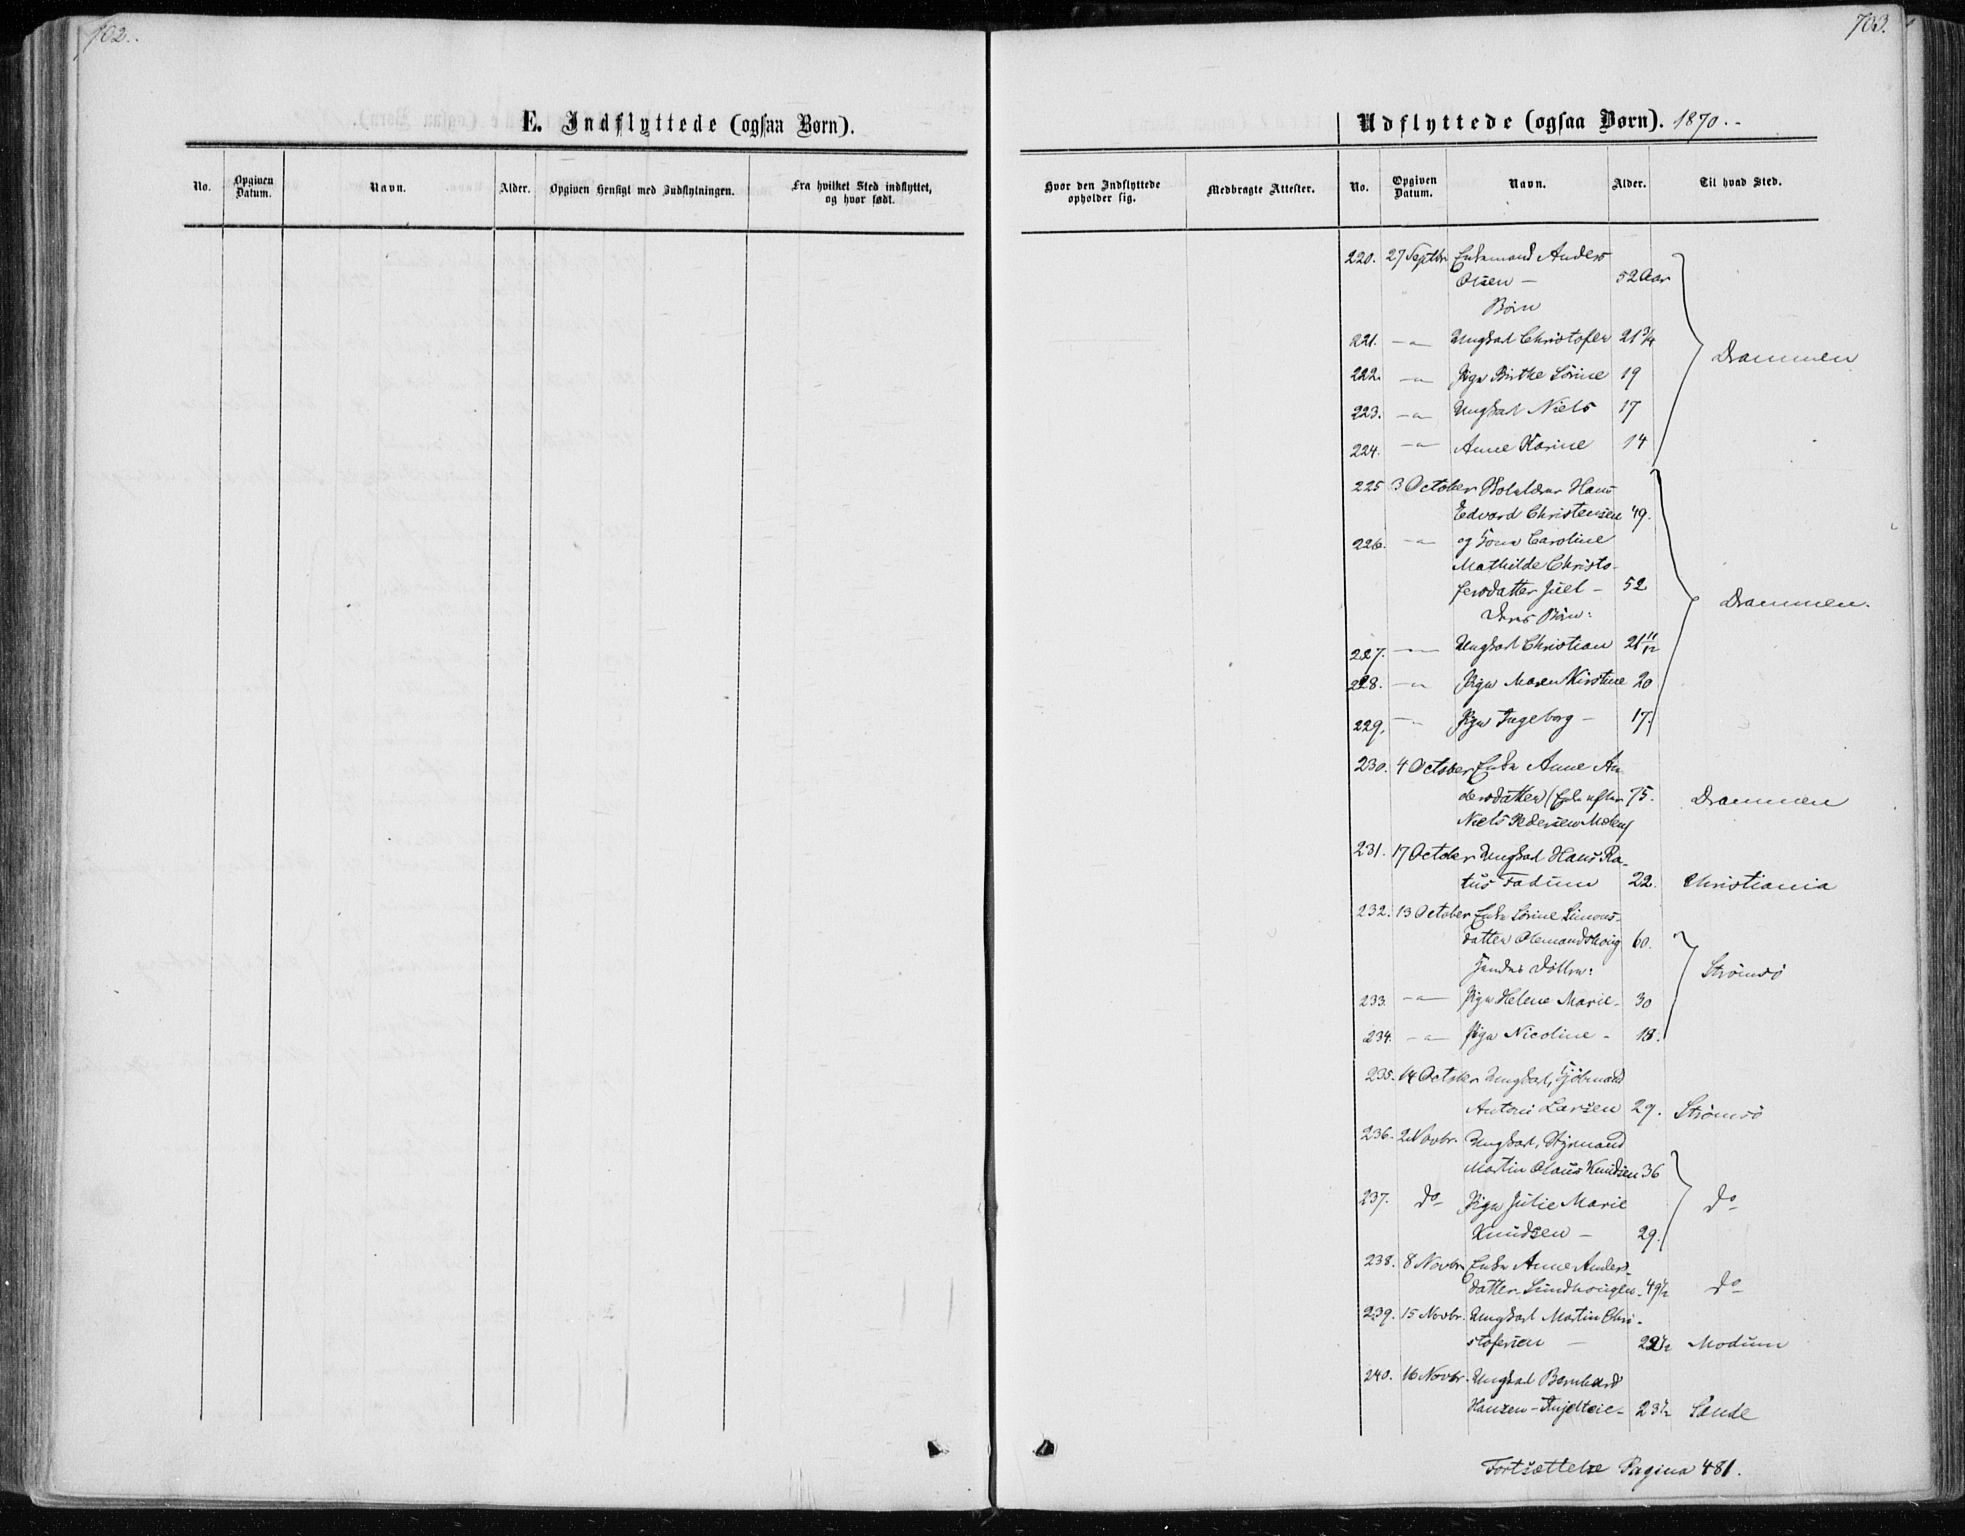 702.
703.
E. Indflyttede (ogsaa Børn).
Udflyttede (ogsaa Børn). 1870.-
No. Opgiven Datum. Navn. Alder. Opgiven Hensigt med Indflytningen. Fra hvilket Sted indflyttet, og hvor født.
Hvor den Indflyttede opholder sig. Medbragte Attester. No. Opgiven Datum. Navn. Alder. Til hvad Sted.
220. 27 Septbr. Enkemand Anders
Olsen - 52 Aar
Børn
221. -"- Ungkarl Christofer 21 3/4 Drammen
222. -"- Pige Birthe Sørine 19
223. -"- Ungkarl Niels 17
224. -"- Anne Karine 14
225 3 October Hans
Edvard Christensen 49.
226. -"- og Kone Caroline
Mathilde Christo-
fersdatter Juel - 52 Drammen.
Deres Børn:
227. -"- Ungkarl Christian 21 11/12
228. -"- Pige Maren Kirstine 20
229. -"- Pige Ingeborg - 17.
230. 4 October Enke Anne An
dersdatter (Enke efter 75. Drammen
Niels Pedersen
231. 17 October Ungkarl Hans Ra-
tus Fadum 22. Christiania
232. 13 October Enke Sørine Simons-
datter 60.
Hendes Døttre: Strømsö
233. -"- Pige Helene Marie - 30
234. -"- Pige Nicoline - 18.
235. 14 October Ungkarl, Sjömand
Anton Larsen 29. Strömsö
236. 2 Novbr. Ungkarl, Styrmand
Martin Olaus Knudsen 36
237. do Pige Julie Marie do
Knudsen - 29.
238. 8 Novbr. Enke Anne Anders-
datter Sundhougen - 49 1/2 do
239. 15 Novbr. Ungkarl Martin Chri-
stofersen - 22 1/2 Modum
240. 16 Novbr. Ungkarl Bernhard
Hansen - 23 1/2 Sande
Fortsættelse Pagina 481.